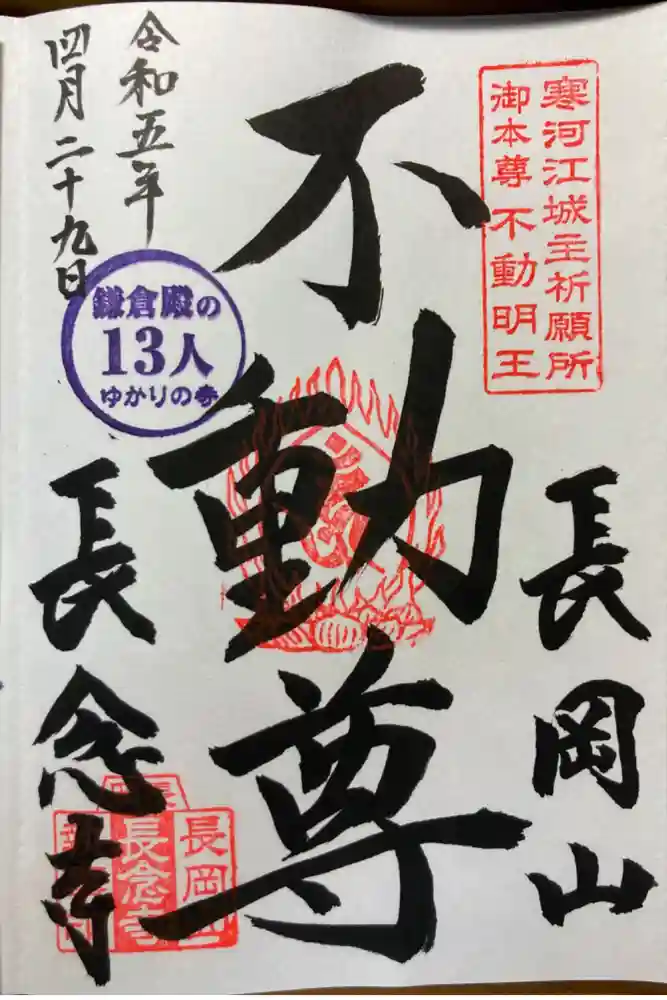 寒河江城主祈願所
御本尊 不動明王
長岡山
不動尊
令和五年
四月二十九日
鎌倉殿の
13人
ゆかりの寺
長念寺
長岡山
長念寺